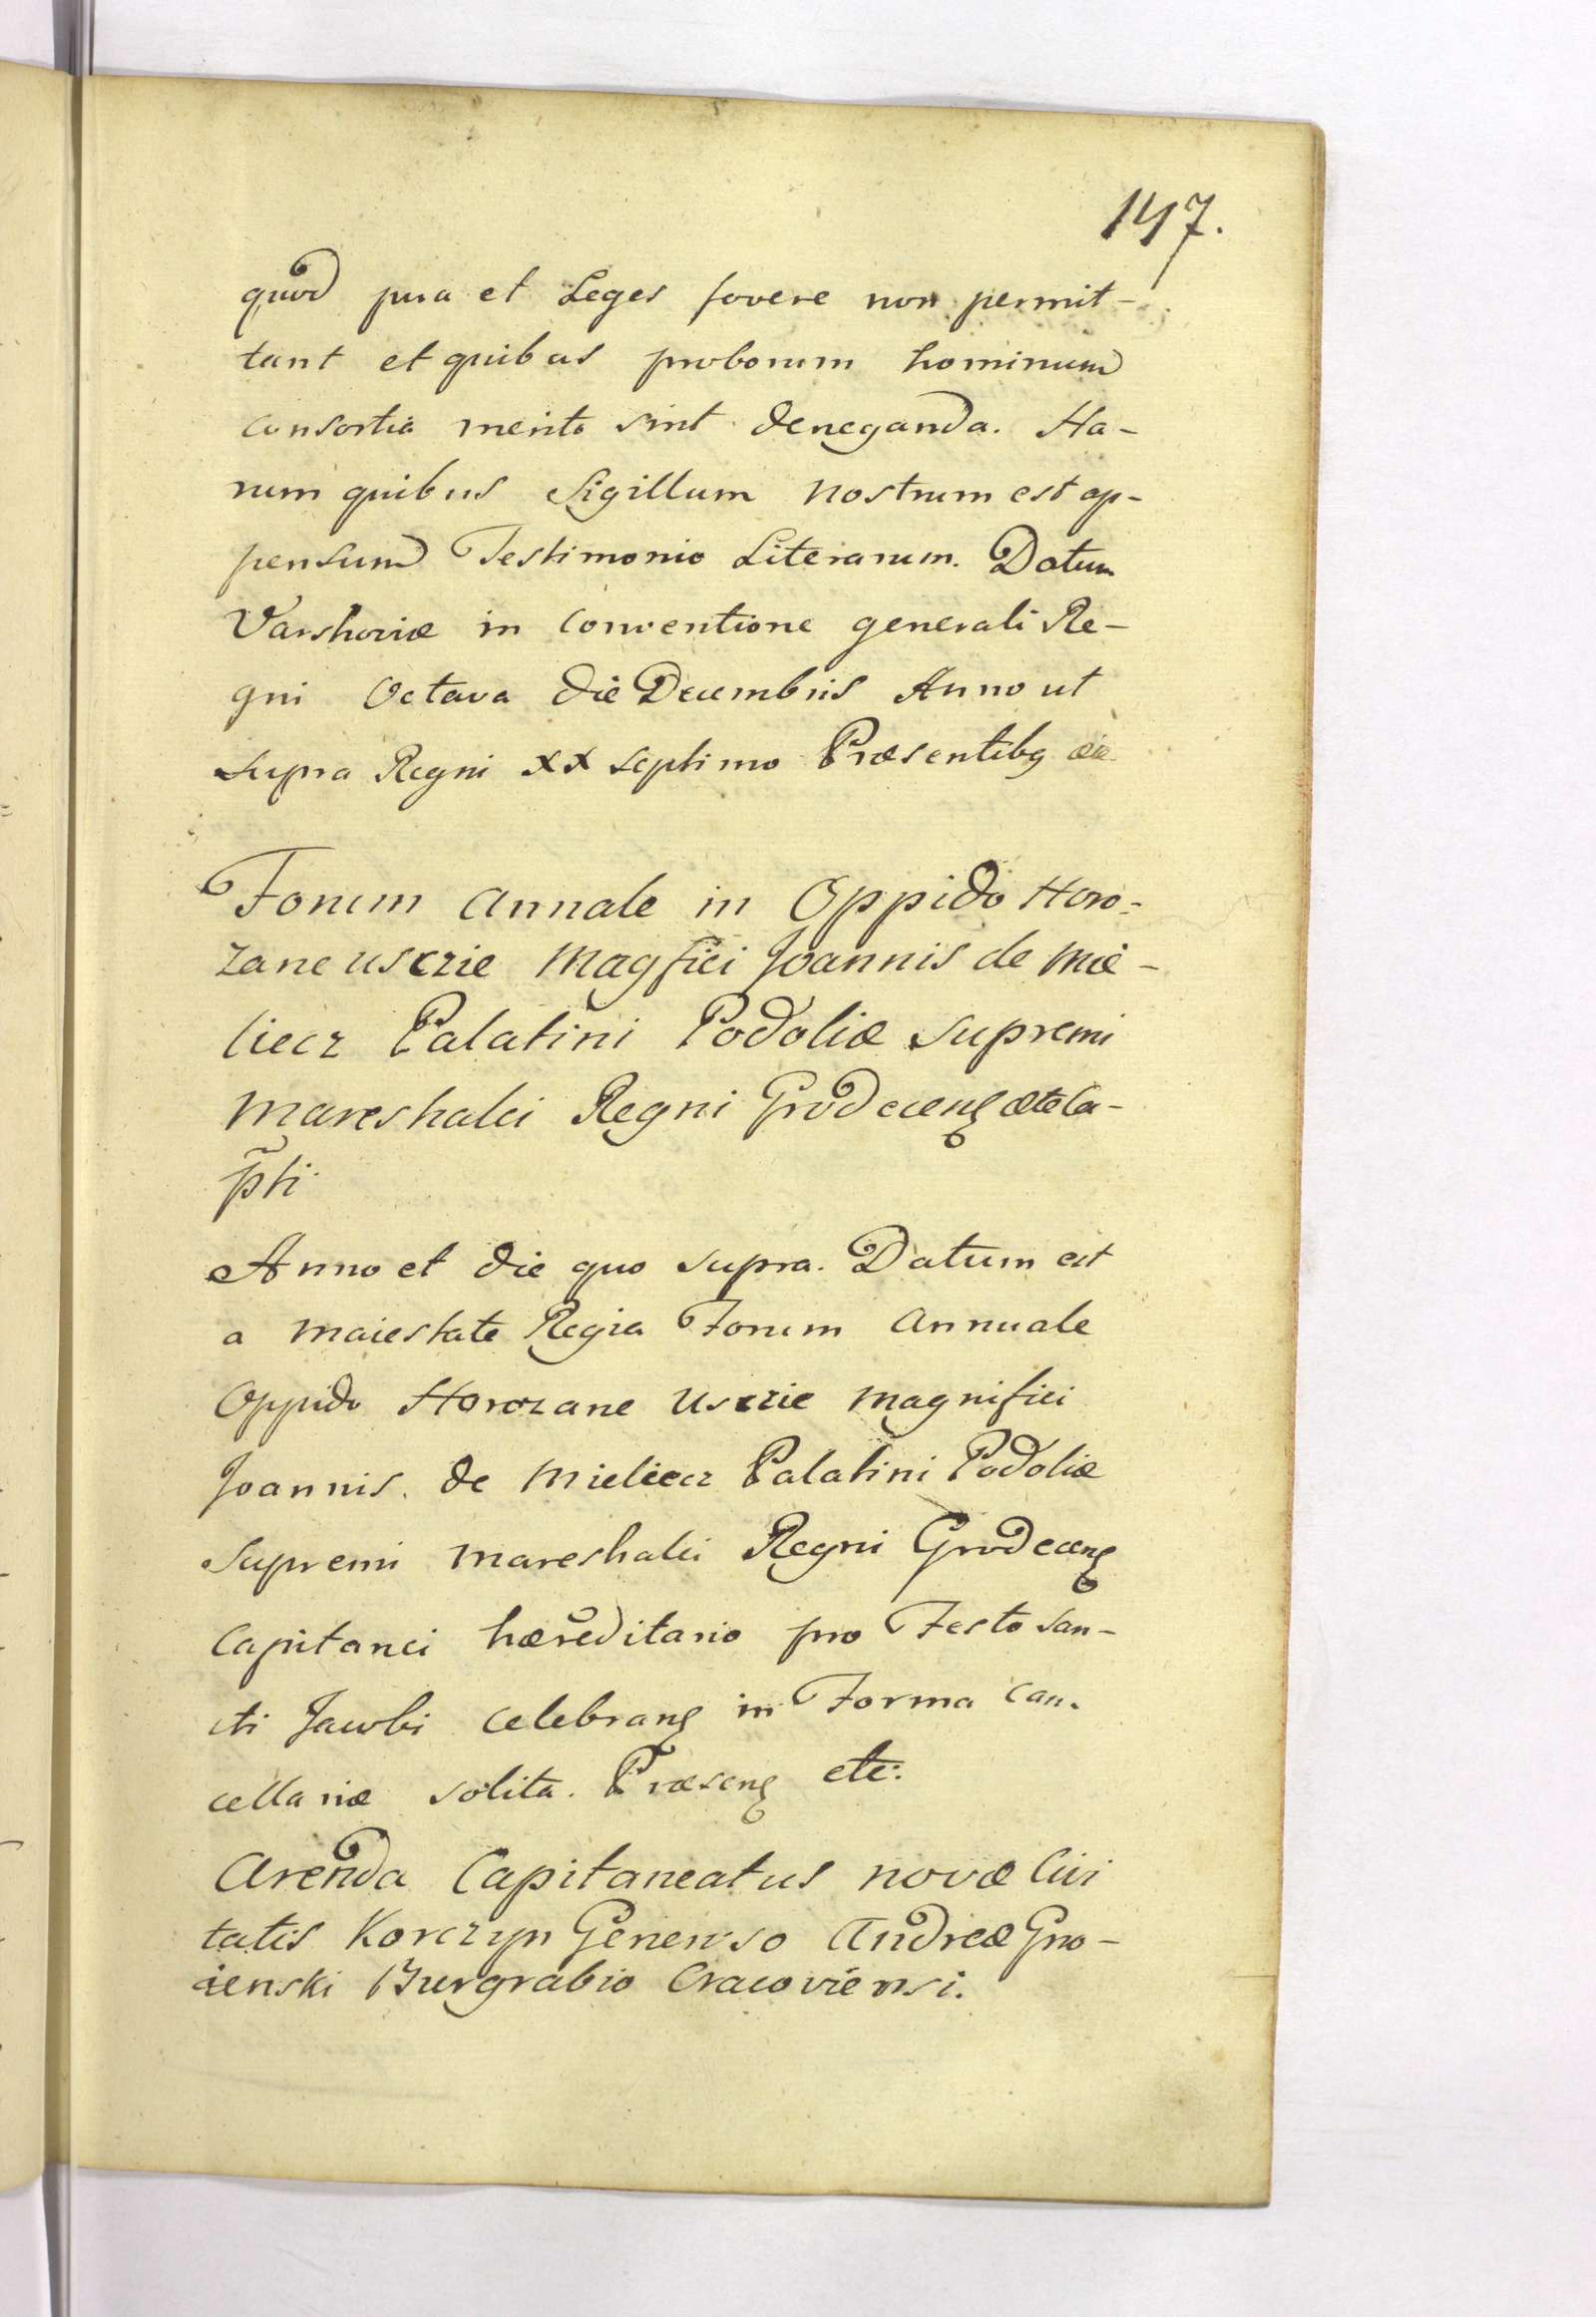 147.
quod jura et Leges fovere non permit-
tant et quibus proborum hominum
consortia merito sint deneganda. Ha-
rum quibus Sigillum nostrum est ap-
pensum Testimonio Literarum. Datum
Varshoviæ in conventione generali Re-
gni Octava die Decembris Anno ut
supra Regni XX septimo Præsentibq
Forum annale in Oppido Horo-
zane usczie Magfici Joannis de Mie-
liecz Palatini Podoliæ supremi
Mareshalci Regni Grodecenς Ca-
pti
Anno et die quo supra. Datum est
a Maiestate Regia Forum annuale
Oppido Horozane Usczie magnifici
Joannis de Mieliecz Palatini Podoliæ
supremi Mareshalci Regni Grodecenς
Capitanei hæreditario pro Festo San-
cti Jacobi celebranς in Forma can-
cellariæ solita. Præsenς etc:
Arenda Capitaneatus novæ Civi
tatis Korczyn Generoso Andreæ Gno-
ienski Burgrabio Cracoviensi.